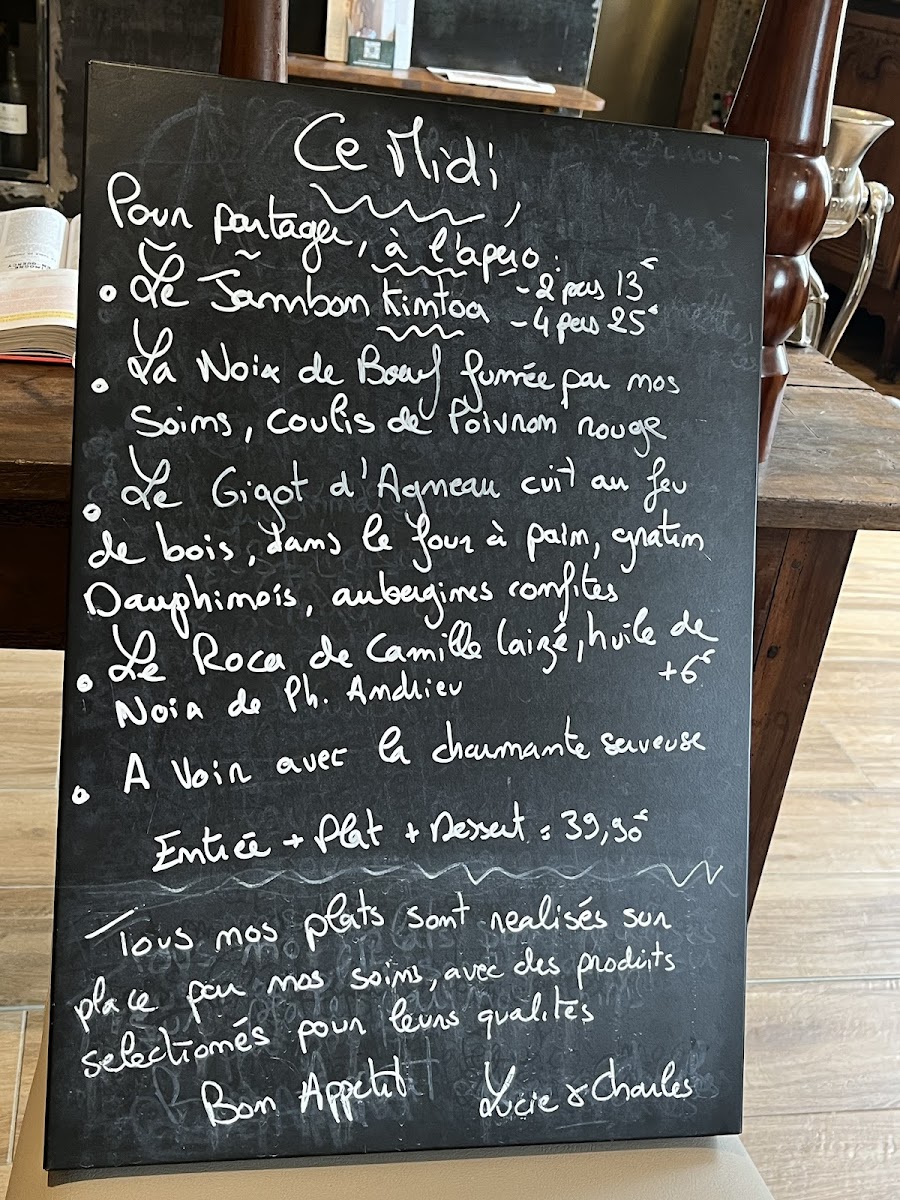 Ce Midi
Pour partager, à l'apéro :
• Le Jambon Kintoa - 2 pers 13€
- 4 pers 25€
• La Noix de Bœuf fumée par nos
Soins, coulis de Poivron rouge
• Le Gigot d'Agneau cuit au feu
de bois, dans le four à pain, gratin
Dauphinois, aubergines confites
• Le Roca de Camille Laizé, huile de
Noix de Ph. Andrieu +6€
• A Voir avec la charmante serveuse
Entrée + Plat + Dessert = 39,90€
Tous nos plats sont realisés sur
place par nos soins, avec des produits
selectionnés pour leurs qualités
Bon Appétit Lucie & Charles